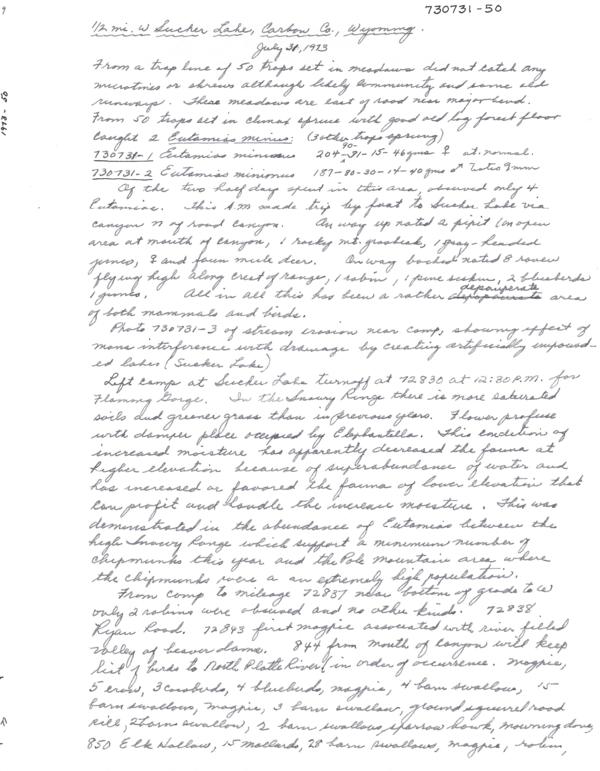 730731-50
1/2 mi. W Sucker Lake, Carbon Co., Wyoming.
July 31, 1973
From a trap line of 50 traps set in meadows did not catch any
microtines or shrews although likely community and some old
runways. These meadows are east of road near major bend.
From 50 traps set in climax spruce with good old log forest floor
caught 2 Eutamias minimus: (3 other traps sprung)
730731-1 Eutamias minimus 204-90-31-15-46gms ♀ ut. normal.
730731-2 Eutamias minimus 187-80-30-14-40gms ♂ Testes 9mm
Of the two half days spent in this area, observed only 4
Eutamias. This A.M made trip by foot to Sucker Lake via
canyon N of road canyon. On way up noted a pipit (on open
area at mouth of canyon, 1 rocky mt. grosbeak, 1 gray-headed
junco, ♀ and fawn mule deer. On way back noted 8 raven
flying high along crest of range, 1 robin, 1 pine siskin, 2 bluebirds
1 junco. All in all this has been a rather depauperate area
of both mammals and birds.
Photo 730731-3 of stream erosion near camp, showing effect of
mans interference with drainage by creating artificially impound-
ed lakes (Sucker Lake)
Left camp at Sucker Lake turnoff at 72830 at 12:30 P.M. for
Flaming Gorge. In the Snowy Range there is more saturated
soils and greener grass than in previous years. Flower profuse
with damper place occupied by Elephantella. This condition of
increased moisture has apparently decreased the fauna at
higher elevation because of superabundance of water and
has increased or favored the fauna of lower elevation that
can profit and handle the increase moisture. This was
demonstrated in the abundance of Eutamias between the
high Snowy Range which support a minimum number of
chipmunks this year and the Pole Mountain area where
the chipmunks were a an extremely high population.
From camp to mileage 72837 near bottom of grade to W
only 2 robins were observed and no other kinds. 72838
Ryan Road. 72843 first magpie associated with river filled
valley of beaver dams. 844 from mouth of canyon will keep
list of birds to North Platte River (in order of occurrence. magpie,
5 crow, 3 cowbirds, 4 bluebirds, magpie, 4 barn swallows, 15
barn swallows, magpie, 3 barn swallow, ground squirrel road
kill, 2 barn swallow, 2 barn swallows, sparrow hawk, mourning dove,
850 Elk Hollow, 15 mallards, 28 barn swallows, magpie, robin,